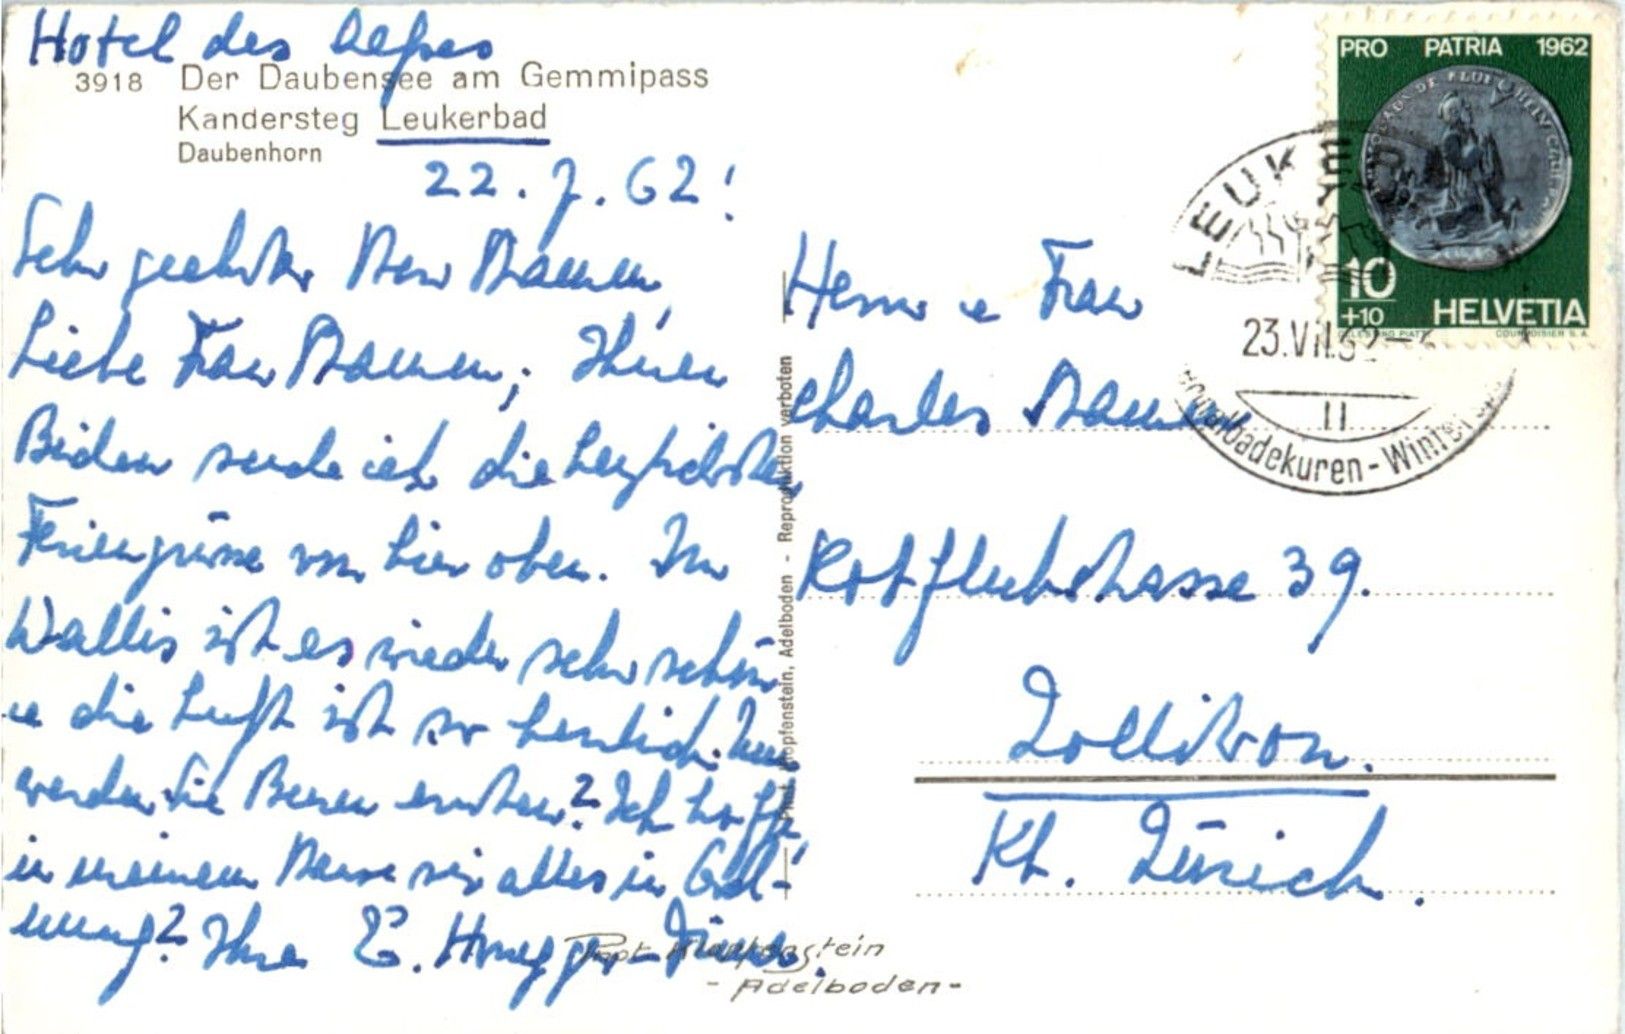 Hotel des Alpes
3918 Der Daubensee am Gemmipass
Kandersteg Leukerbad
Daubenhorn
22.7.62!
Sehr geehrter Herr
Liebe Frau ; Ihnen
Beiden sende ich die herzlichsten
Feriengrüsse von hier oben. Im
Wallis ist es wieder sehr schön
u die Luft ist so herrlich.
werden Sie Beeren ernten? Ich hoffe,
in meinem Hause sei alles in Ord-
nung? Ihre E. Honegger-
Phot. Klopfenstein, Adelboden - Reproduktion verboten
Phot. Klopfenstein
- Adelboden -
PRO PATRIA 1962
10
+10
HELVETIA
COURVOISIER S.A.
LEUKERBAD
23.VII.62
II
Thermalbadekuren-Wintersport
Herrn u Frau
Charles
Rotfluhstrasse 39.
Zollikon.
Kt. Zürich.